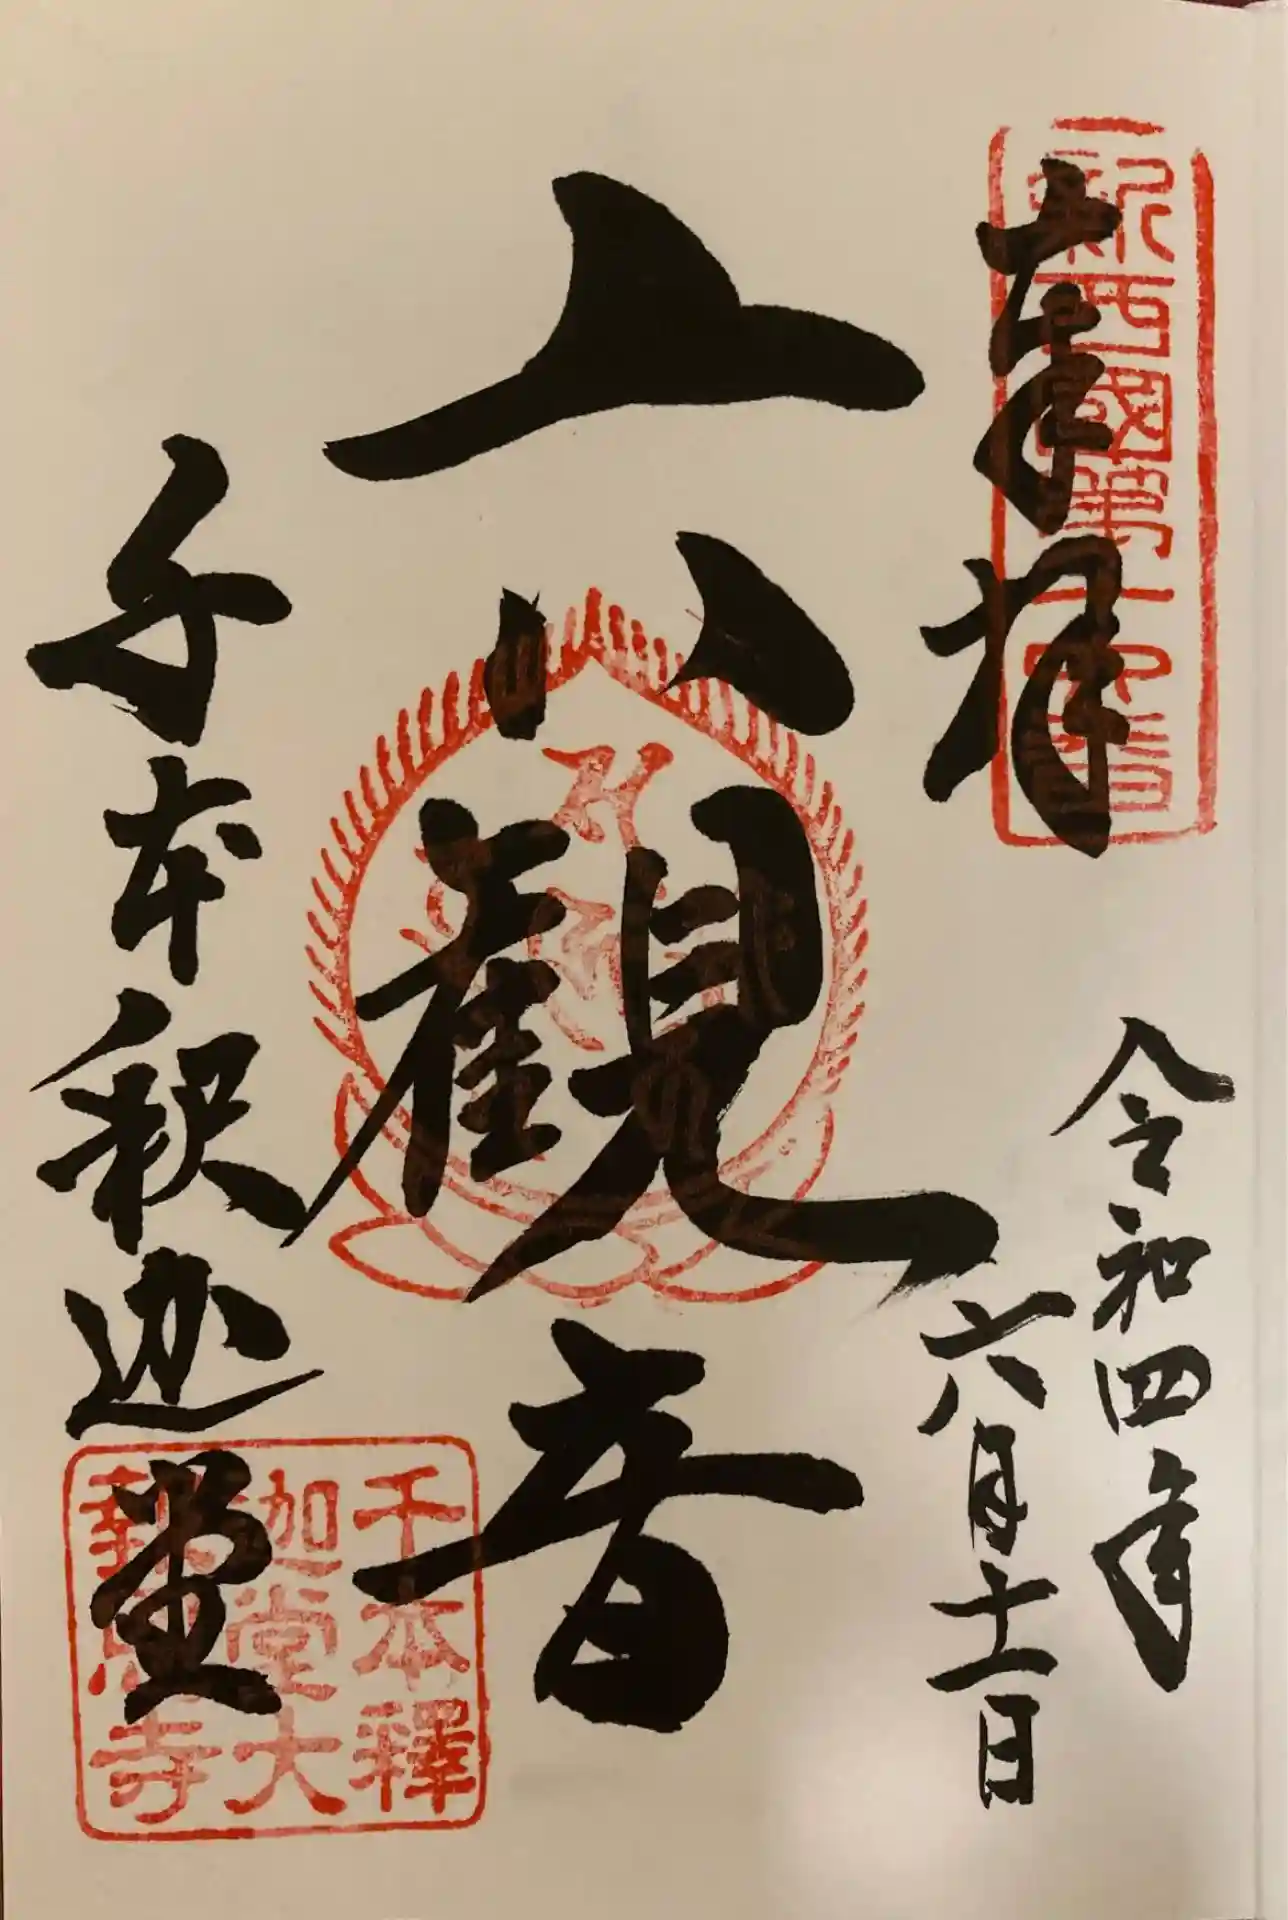 新西國第十六番
奉拝
令和四年
六月十一日
六観音
千本釈迦堂
千本釋
迦堂大
報恩寺